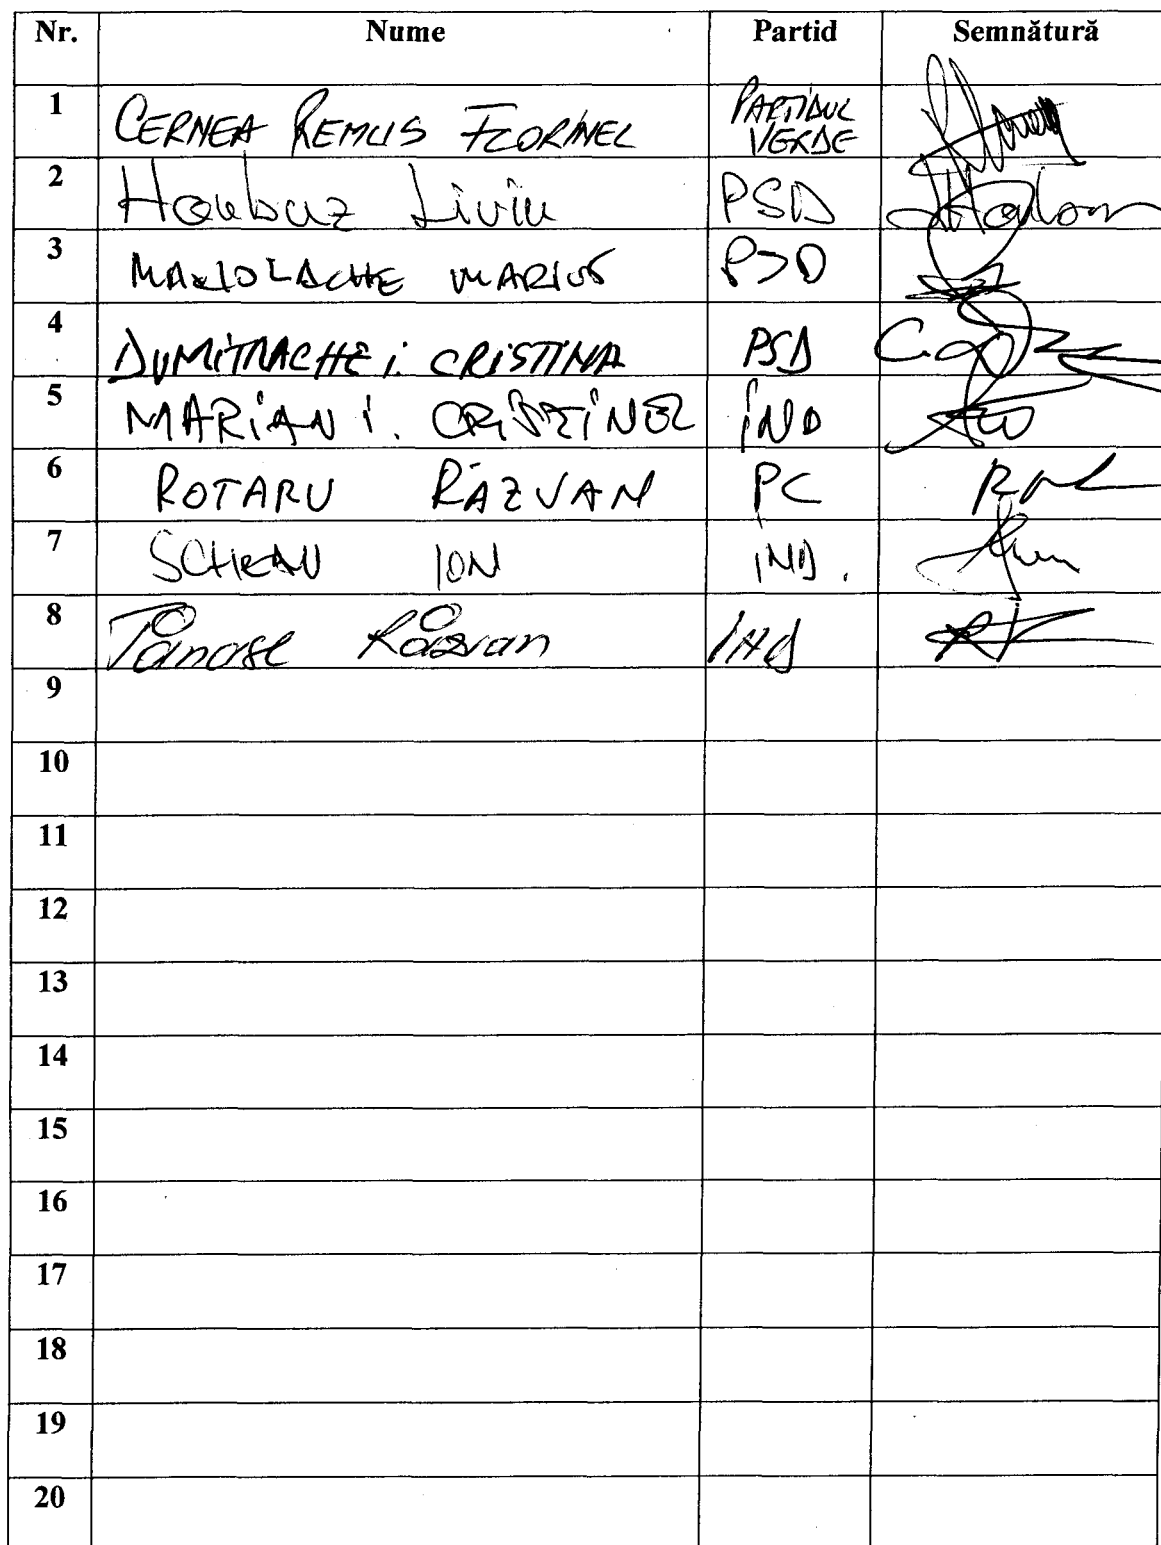 Nr. Nume Partid Semnătură
1 CERNEA REMUS FLORINEL PARTIDUL VERDE
2 Harbuz Liviu PSD
3 MANOLACHE MARIUS PSD
4 DUMITRACHE i. CRISTINA PSD
5 MARiAN i. CRiSTiNEL iND
6 ROTARU RĂZVAN PC
7 SCHEAU ION iND.
8 Tănase Răzvan IND
9
10
11
12
13
14
15
16
17
18
19
20